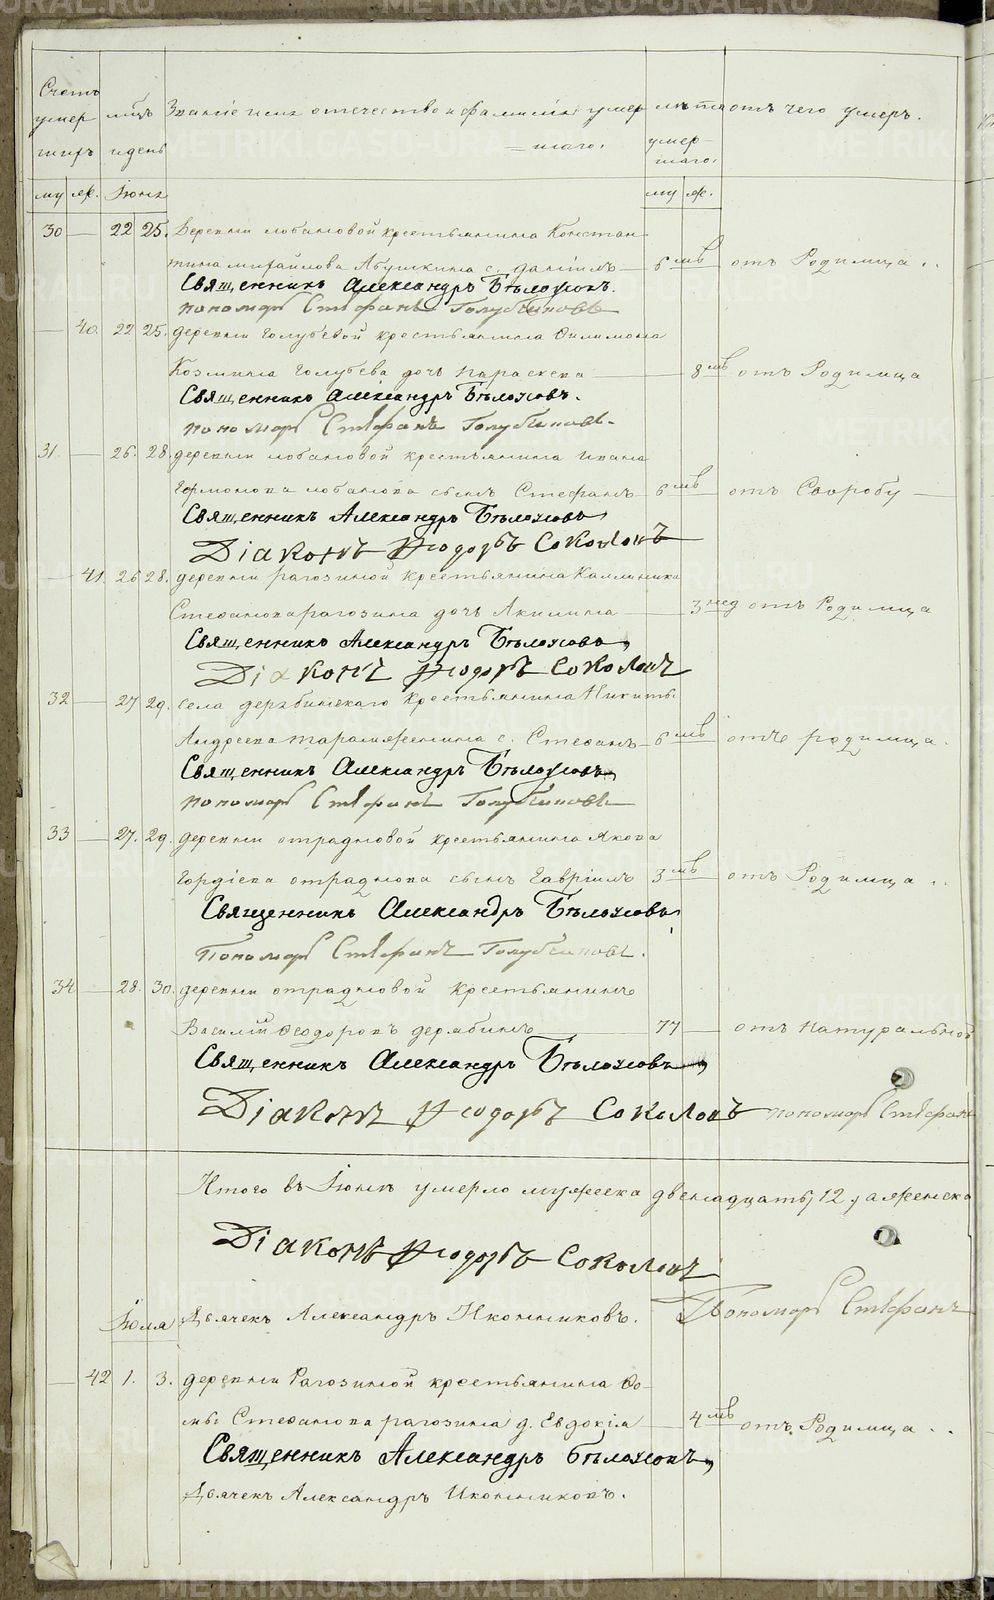 Счетъ умершихъ
мцъ и день
Званіе имя отечество и фамилія умершаго.
лѣта умершаго.
отъ чего умеръ.
му. же. Іюня му же.
30 22 25. Деревни лобановой крестьянина Констан
тина михайлова Ябушкина с. даніилъ 6 мѣ отъ Родимца
Священникъ Александръ Бѣлоусовъ.
пономарь Стефанъ Голубчиковъ
40 22 25. деревни Голубевой крестьянина Филимона
Козмина Голубева дочь параскева 8 мѣ отъ Родимца
Священникъ Александръ Бѣлоусовъ.
пономарь Стефанъ Голубчиковъ.
31. 26. 28. деревни лобановой крестьянина ивана
лобанова сынъ Стефанъ 6 мѣ отъ Своробу
Священникъ Александръ Бѣлоусовъ
Діаконъ Ѳеодоръ Соколовъ
41. 26 28. деревни рагозиной крестьянина Каллиника
Стефанова рагозина дочь Акилина 3 нед отъ Родимца
Священникъ Александръ Бѣлоусовъ
Діаконъ Ѳеодоръ Соколовъ
32 27 29. села дерябинскаго крестьянина Никиты
Андреева с. Стефанъ 6 мѣ отъ родимца.
Священникъ Александръ Бѣлоусовъ
пономарь Стефанъ Голубчиковъ
33 27. 29. деревни отрадновой крестьянина Якова
Гордіева отраднова сынъ Гавріилъ 3 мѣ отъ Родимца
Священникъ Александръ Бѣлоусовъ
Пономарь Стефанъ Голубчиковъ.
34 28. 30. деревни отрадновой крестьянинъ
Василій Феодоровъ дерябинъ 77 отъ натуральной
Священникъ Александръ Бѣлоусовъ
Діаконъ Ѳеодоръ Соколовъ пономарь Стефанъ
Итого въ Іюнѣ умерло мужеска двенадцать, 12, а женска
Діаконъ Ѳеодоръ Соколовъ
Пономарь Стефанъ
Іюля Дьячекъ Александръ Иконниковъ.
42 1. 3. деревни Рагозиной крестьянина Фо-
мы Стефанова рагозина д. Евдокія 4 мѣ отъ Родимца
Священникъ Александръ Бѣлоусовъ
Дьячекъ Александръ Иконниковъ.
METRIKI.GASO-URAL.RU